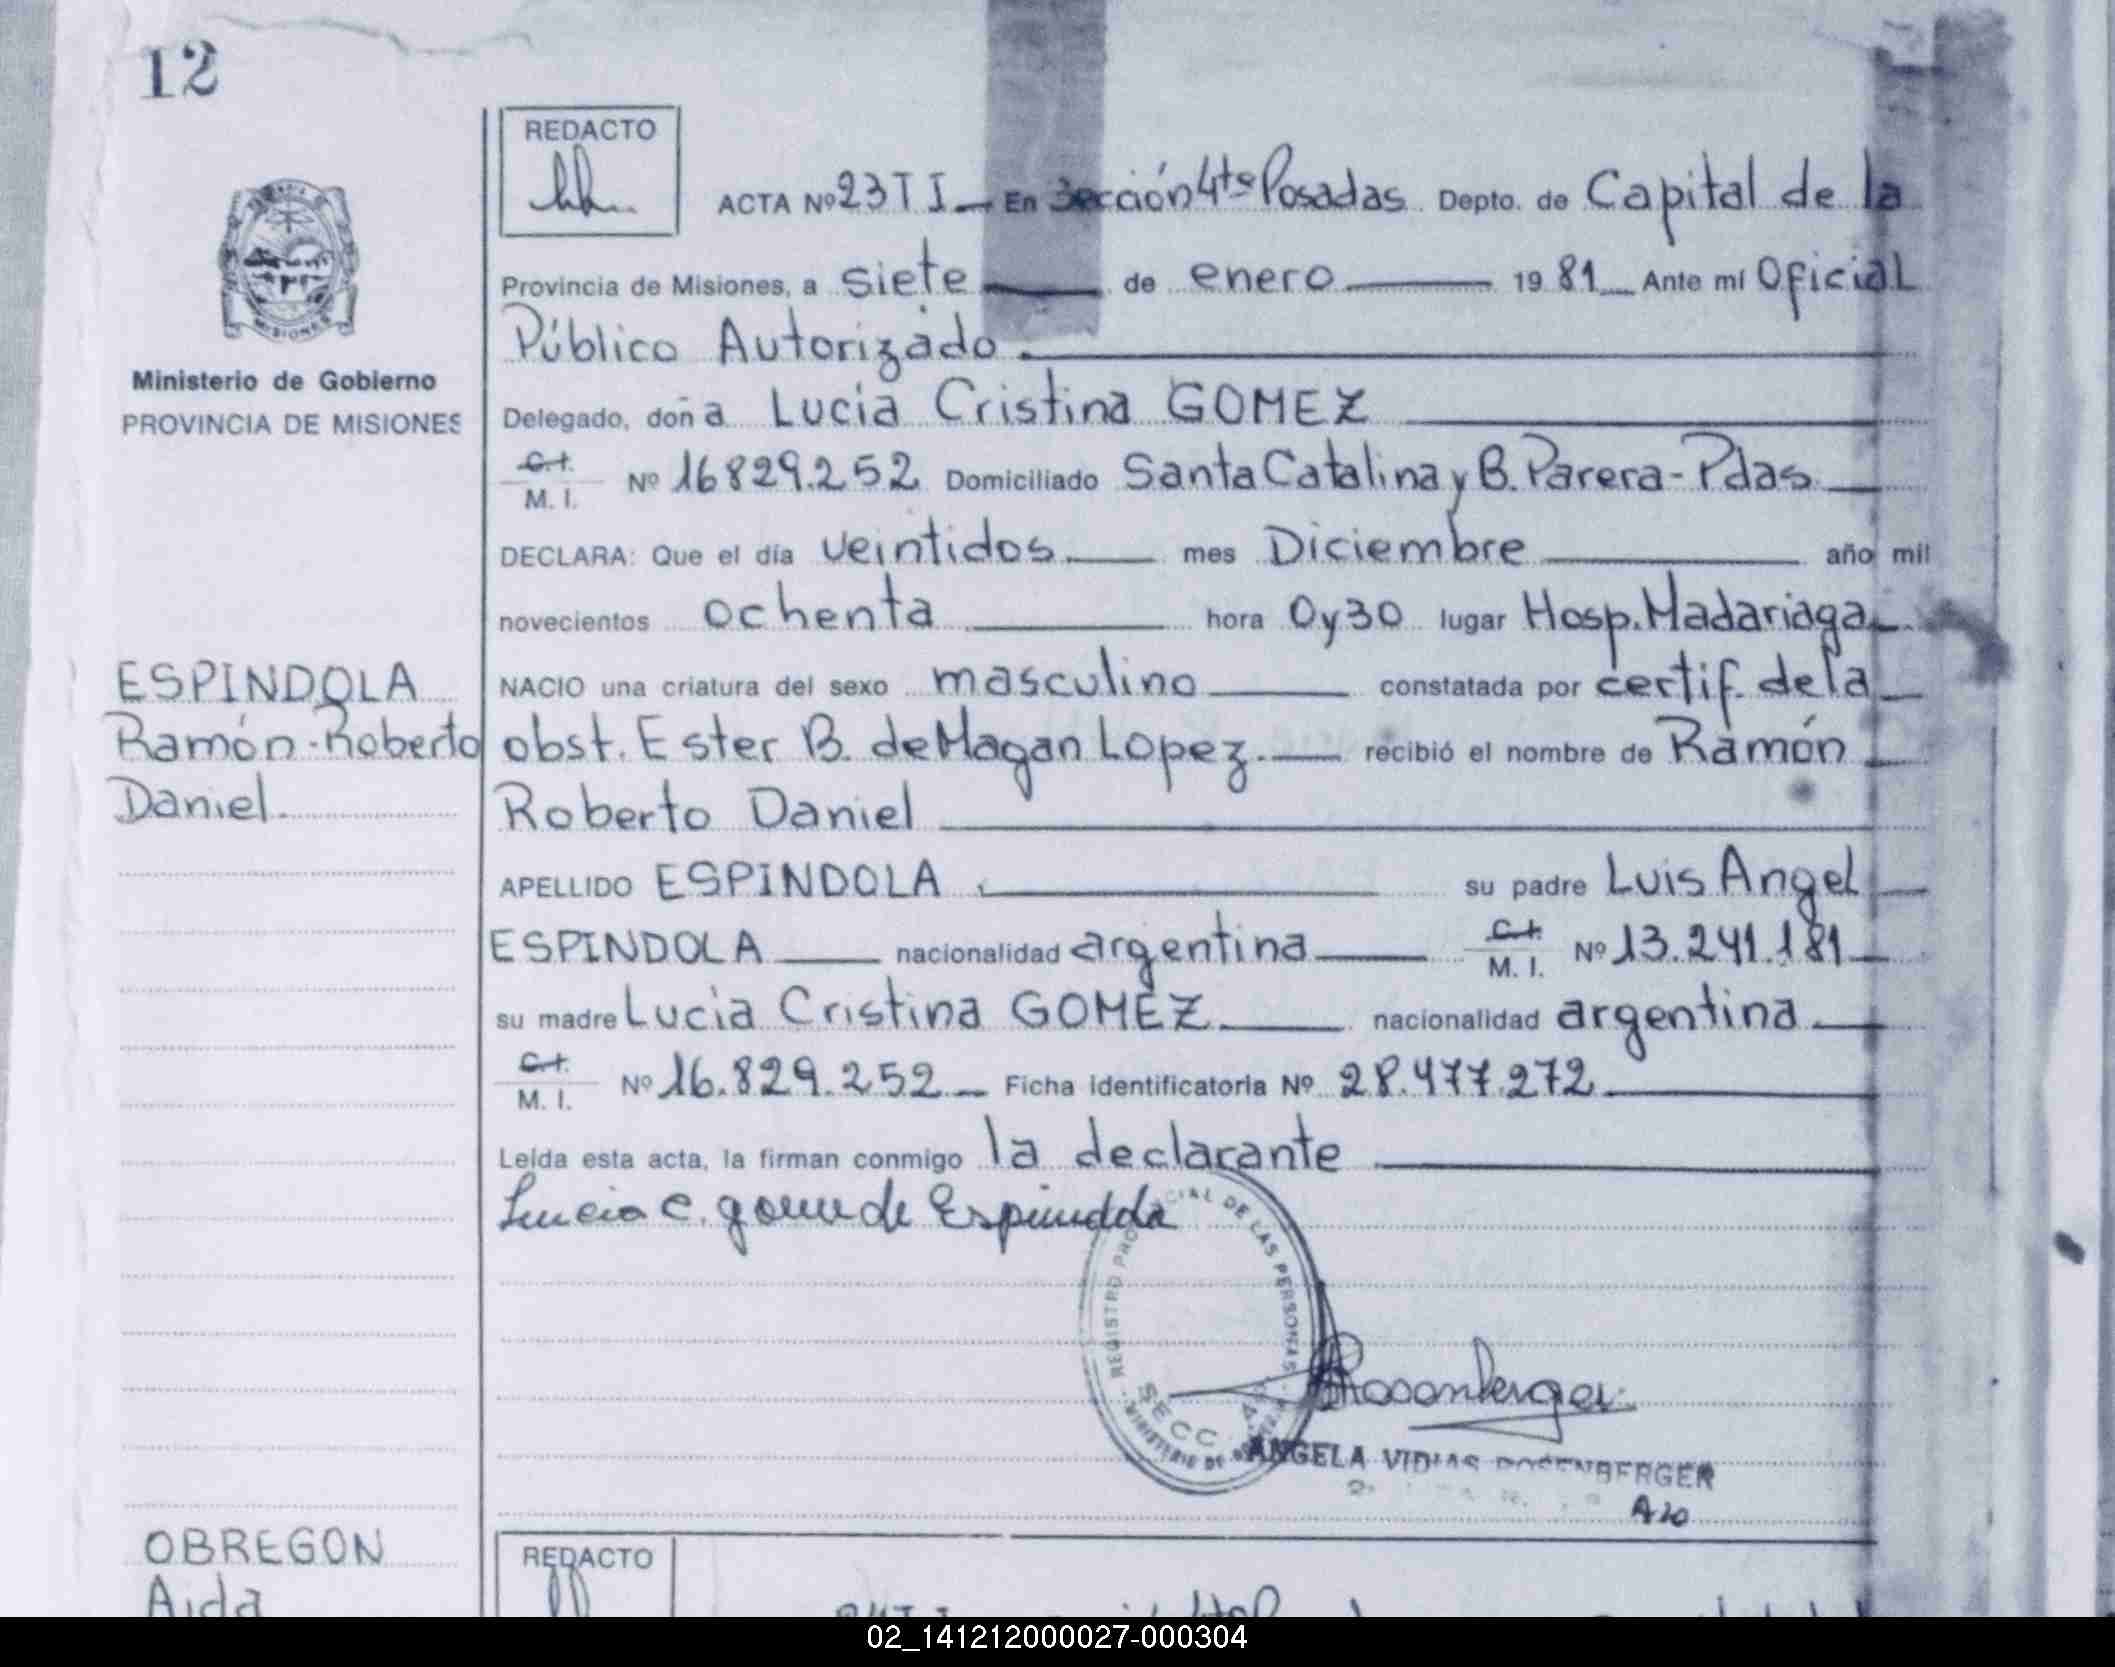 12
REDACTO
ACTA Nº 23 T I En Sección 4ta Posadas Depto. de Capital de la
Provincia de Misiones, a siete de enero 19 81 Ante mí Oficial
Público Autorizado
Ministerio de Gobierno
PROVINCIA DE MISIONES
Delegado, doña Lucia Cristina GOMEZ
C.I. M. I. Nº 16829.252 Domiciliado Santa Catalina y B. Parera - Pdas.
DECLARA: Que el día veintidos mes Diciembre año mil
novecientos ochenta hora 0y30 lugar Hosp. Madariaga
ESPINDOLA
Ramón Roberto
Daniel.
NACIO una criatura del sexo masculino constatada por certif. de la
obst. Ester B. de Magan Lopez. recibió el nombre de Ramón
Roberto Daniel
APELLIDO ESPINDOLA su padre Luis Angel
ESPINDOLA nacionalidad argentina C.I. M. I. Nº 13.241.181
su madre Lucia Cristina GOMEZ nacionalidad argentina
C.I. M. I. Nº 16.829.252 Ficha identificatoria Nº 28.477.272
Leída esta acta, la firman conmigo la declarante
Lucia C. gome de Espindola
REGISTRO PROVINCIAL DE LAS PERSONAS
SECC. 4
MINISTERIO DE
Rosenberger
ANGELA VIDIAS ROSENBERGER
OBREGON
Aida
REDACTO
02_141212000027-000304